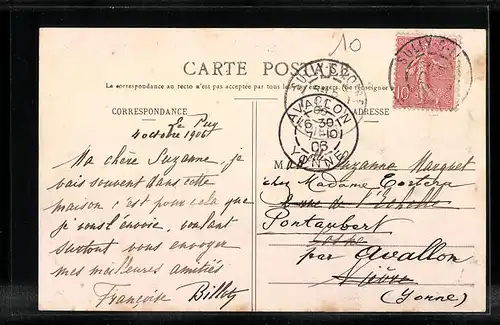 10
CARTE POSTALE
La correspondance au recto n'est pas acceptée par tous les pays étrangers. (Se renseigner
CORRESPONDANCE
ADRESSE
Le Puy
4 octobre 1906
Ma chère Suzanne, je
vais souvent dans cette
maison c'est pour cela que
je vous l'envoie, voulant
surtout vous envoyer
mes meilleures amitiés
Françoise Billet
SULLY-S-LOIRE
AVALLON
6 30
7-10
06
YONNE
10
SULLY-S-L
M Suzanne Marquet
chez Madame
rue de l'Echelle
Pontaubert
par Avallon
Nièvre
(Yonne)